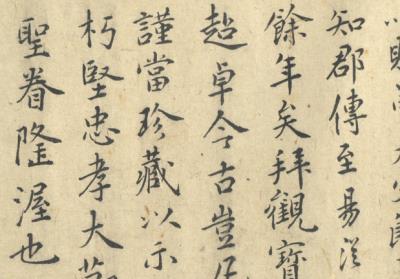 以賜
知郡傳至易
餘年矣拜觀寶
超卓今古豈
謹當珍藏以示
朽堅忠孝大
聖眷隆渥也